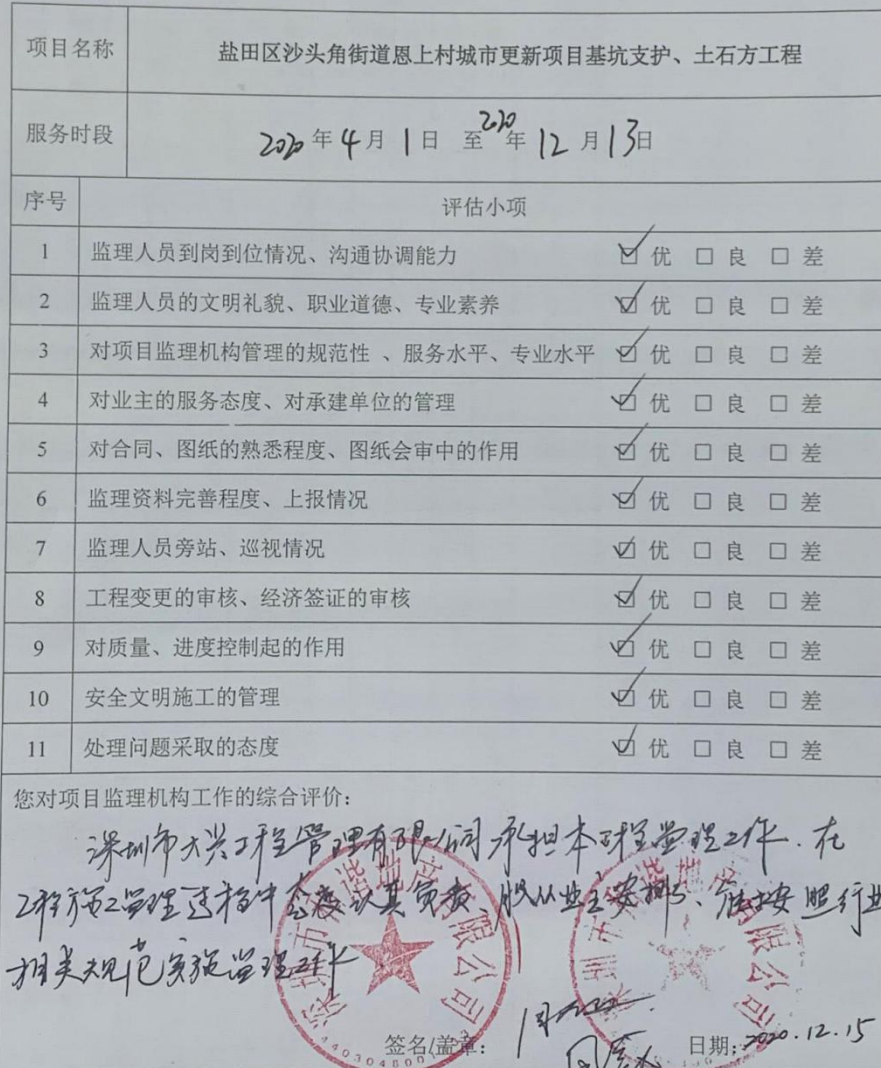 项目名称 盐田区沙头角街道恩上村城市更新项目基坑支护、土石方工程
服务时段 2020年4月1日 至2020年12月13日
序号 评估小项
1 监理人员到岗到位情况、沟通协调能力 ☑优 □良 □差
2 监理人员的文明礼貌、职业道德、专业素养 ☑优 □良 □差
3 对项目监理机构管理的规范性 、服务水平、专业水平 ☑优 □良 □差
4 对业主的服务态度、对承建单位的管理 ☑优 □良 □差
5 对合同、图纸的熟悉程度、图纸会审中的作用 ☑优 □良 □差
6 监理资料完善程度、上报情况 ☑优 □良 □差
7 监理人员旁站、巡视情况 ☑优 □良 □差
8 工程变更的审核、经济签证的审核 ☑优 □良 □差
9 对质量、进度控制起的作用 ☑优 □良 □差
10 安全文明施工的管理 ☑优 □良 □差
11 处理问题采取的态度 ☑优 □良 □差
您对项目监理机构工作的综合评价：
深圳市大兴工程管理有限公司承担本工程监理工作.在
工程施工监理过程中态度认真负责、服从业主安排、能按照行业
相关规范实施监理工作
签名/盖章： 日期：2020.12.15